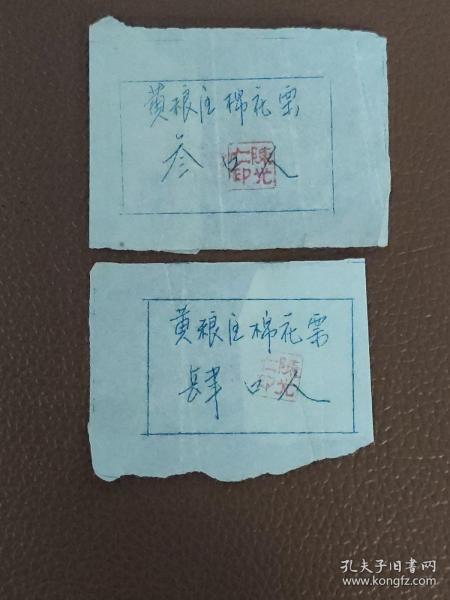 黄粮庄棉花票
叁口人
陈光仁印
黄粮庄棉花票
肆口人
陈光仁印
孔夫子旧书网
www.kongfz.com